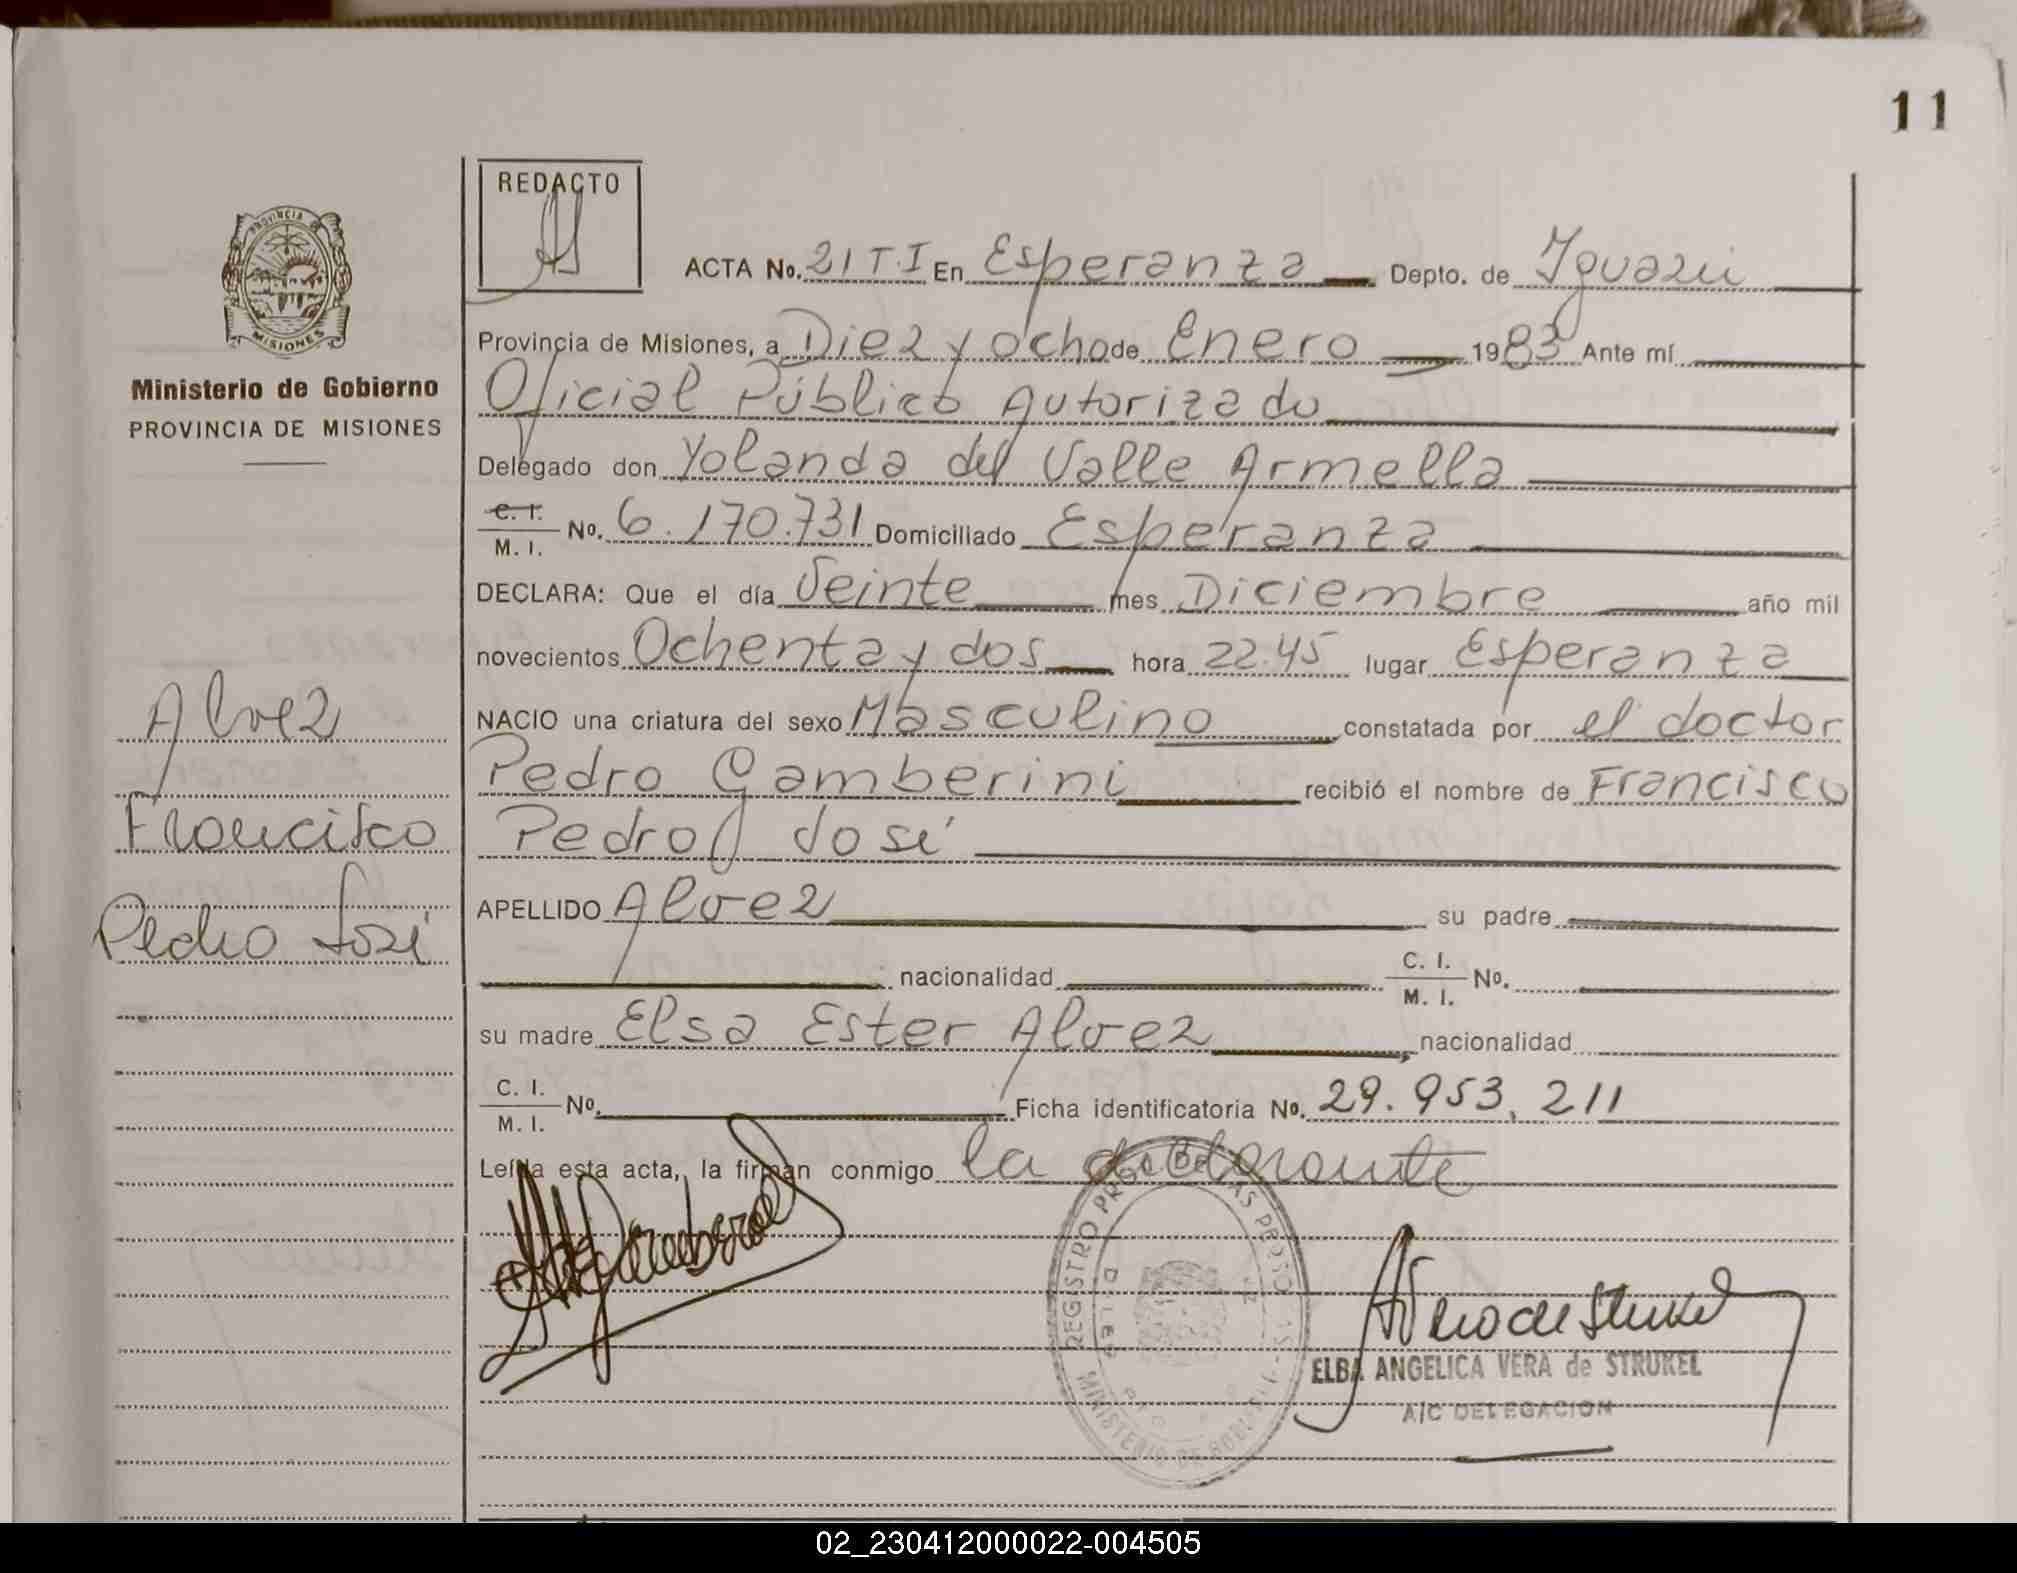 11
REDACTO
ACTA No. 21 T.I En Esperanza Depto. de Iguazú
Provincia de Misiones, a Diez y ocho de Enero 1983 Ante mí
Oficial Público Autorizado
Delegado don Yolanda del Valle Armella
C. I.
M. I. No. 6.170.731 Domiciliado Esperanza
DECLARA: Que el día Veinte mes Diciembre año mil
novecientos Ochenta y dos hora 22.45 lugar Esperanza
NACIO una criatura del sexo Masculino constatada por el doctor
Pedro Gamberini recibió el nombre de Francisco
Pedro José
APELLIDO Alvez su padre
nacionalidad C. I. M. I. No.
su madre Elsa Ester Alvez nacionalidad
C. I. M. I. No. Ficha identificatoria No. 29.953.211
Leída esta acta, la firman conmigo la declarante
PROVINCIA
MISIONES
Ministerio de Gobierno
PROVINCIA DE MISIONES
Alvez
Francisco
Pedro José
REGISTRO PROV. DE LAS PERSONAS
MINISTERIO DE GOBIERNO
Vera de Strukel
ELBA ANGELICA VERA de STRUKEL
A/C DELEGACION
02_230412000022-004505